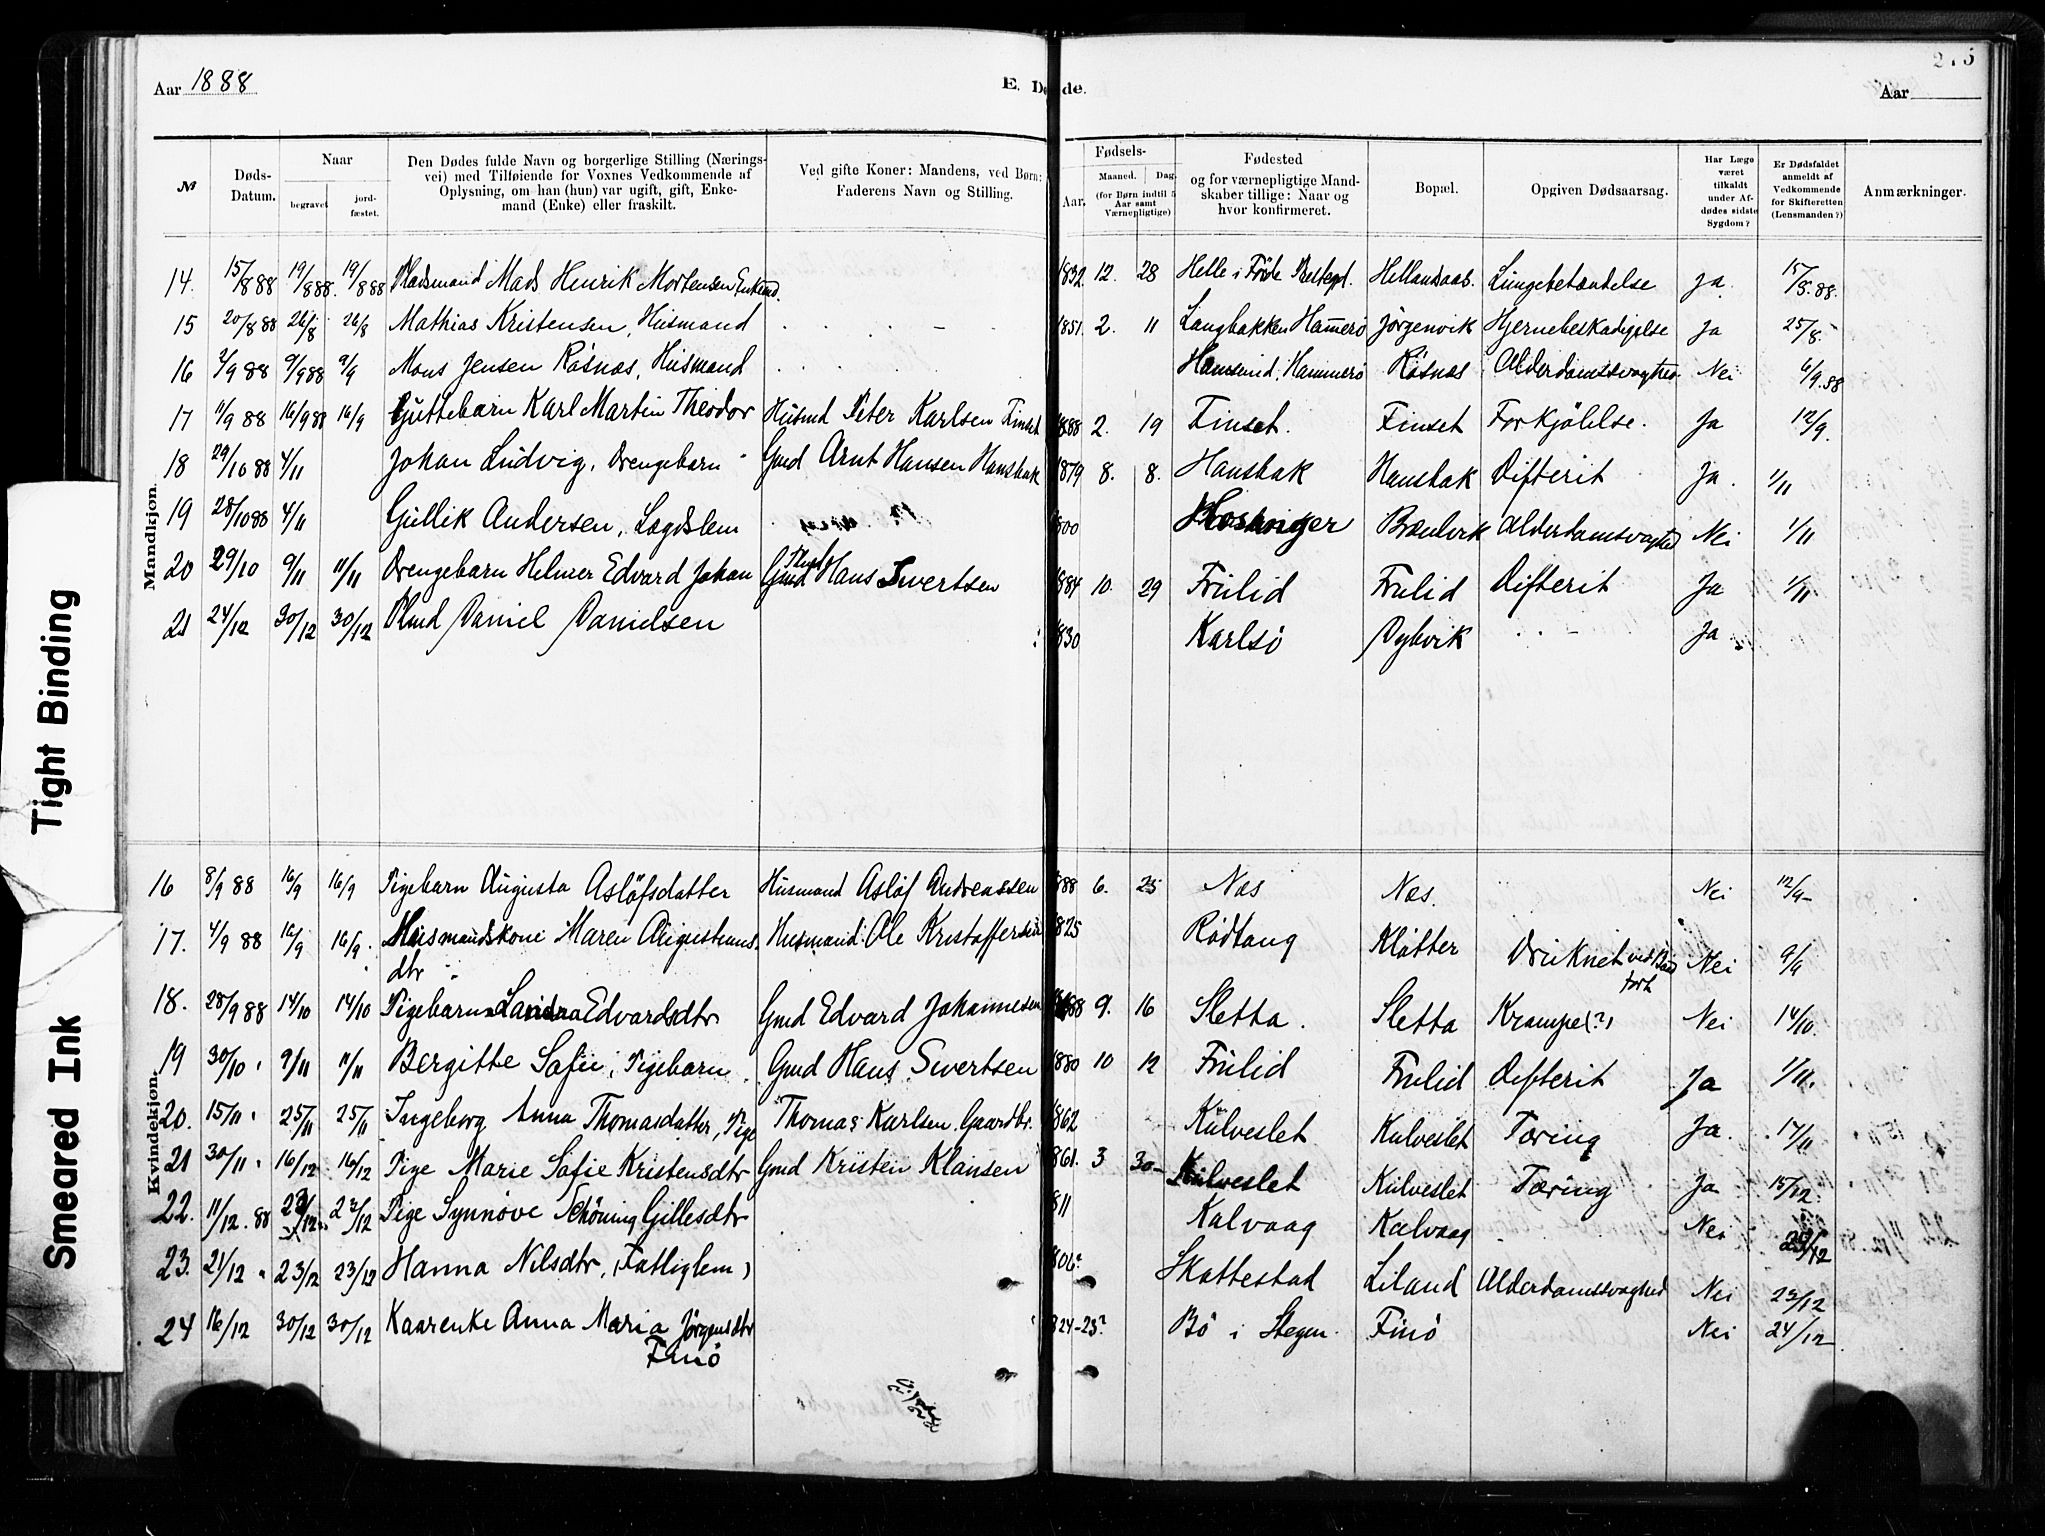 Aar 1888
E. Døde.
Aar
№
Døds-Datum.
Naar
begravet
jordfæstet.
Den Dødes fulde Navn og borgerlige Stilling (Næringsvei) med Tilføiende for Voxnes Vedkommende af Oplysning, om han (hun) var ugift, gift, Enkemand (Enke) eller fraskilt.
Ved gifte Koner: Mandens, ved Børn: Faderens Navn og Stilling.
Fødsels-
Aar.
Maaned. Dag.
(for Børn indtil 5 Aar samt Værnepligtige)
Fødested og for værnepligtige Mandskaber tillige: Naar og hvor konfirmeret.
Bopæl.
Opgiven Dødsaarsag.
Har Læge været tilkaldt under Afdødes sidste Sygdom?
Er Dødsfaldet anmeldt af Vedkommende for Skifteretten (Lensmanden?)
Anmærkninger.
Mandkjøn.
14. 15/8 88 19/8 88. 19/8 88 Pladsmand Mads Henrik Mortensen Enkemd. 1832 12. 28 Helle i Präst. Hellandsaas. Lungebetændelse Ja. 15/8. 88.
15 20/8 88 26/8 26/8 Mathias Kristensen, Husmand 1851. 2. 11 Langbakken Hamerø Jørgenvik Hjernebeskadigelse Ja 25/8.
16 2/9 88 9/9 88 9/9 Mons Jensen Røsnæs, Husmand Hammerø Røsnæs Alderdomssvaghed Nei 6/9. 88
17 11/9 88 16/9 88 16/9 Guttebarn Karl Martin Theodor Husmd Peter Karlsen Finset 1888 2. 19 Finset. Finset Forkjølelse. Ja 12/9.
18 29/10 88 4/11 Johan Ludvig, Drengebarn Gmd Arnt Hansen Hansbak 1879 8. 8. Hansbak Hansbak Difterit Ja. 1/11
19 28/10 88 4/11 Gullik Andersen, Lægdslem Brænvik Alderdomssvaghed Nei 1/11
20 29/10 9/11 11/11 Drengebarn Helmer Edvard Johan Gmd Hans Sivertsen 1884 10. 29 Frulid Frulid Difterit Ja 1/11
21 24/12 30/12 30/12 Plmd Daniel Danielsen 1830 Karlsø Dybvik Ja
Kvindekjøn.
16 8/9 88 16/9 16/9 Pigebarn Augusta Asløfsdatter Husmand Asløf Andreassen 1888 6. 25 Næs Næs. Nei 12/9
17. 4/9 88 16/9 16/9. Husmandskone Maren Augustinusdtr Husmand Ole Kristoffersen 1825 Rødtang Kløtter Druknet ved Baad Nei 9/9
18. 28/9 88 14/10 14/10 Pigebarn Edvardsdtr Gmd Edvard Johannesen 1888 9. 16 Sletta. Sletta Krampe(?) Nei 14/10.
19 30/10 9/11 11/11 Bergitte Sofie, Pigebarn Gmd Hans Sivertsen 1880 10 12 Frulid Frulid Difterit Ja 1/11.
20. 15/11 25/11 25/11 Ingeborg Anna Thomasdatter, Pige Thomas Karlsen. Gaardbr. 1862 Kulveslet Kulveslet Tæring Ja. 17/11
21 30/11 16/12 16/12 Pige Marie Sofie Kristensdtr Gmd Kristen Klausen 1861. 3 30 Kulveslet Kulveslet Tæring Ja 15/12.
22. 11/12. 88 23/12 23/12 Pige Synnøve Schöning Gillesdtr 1811 Kalvaag Kalvaag Nei 23/12
23. 21/12 23/12 23/12 Hanna Nilsdtr, (Fattiglem) 1806? Skattestad Liland Alderdomssvaghed Nei 23/12
24 16/12 30/12 30/12 Kaarenke Anna Maria Jørgensdtr Finø 1824-25? Bø i Stegen. Finø Nei 24/12
Tight Binding
Smeared Ink